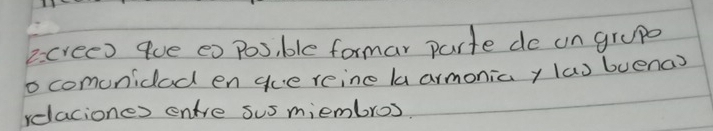 2. crees que es posible formar parte de un grupo
o comunidad en que reine la armonia y las buenas
relaciones entre sus miembros.